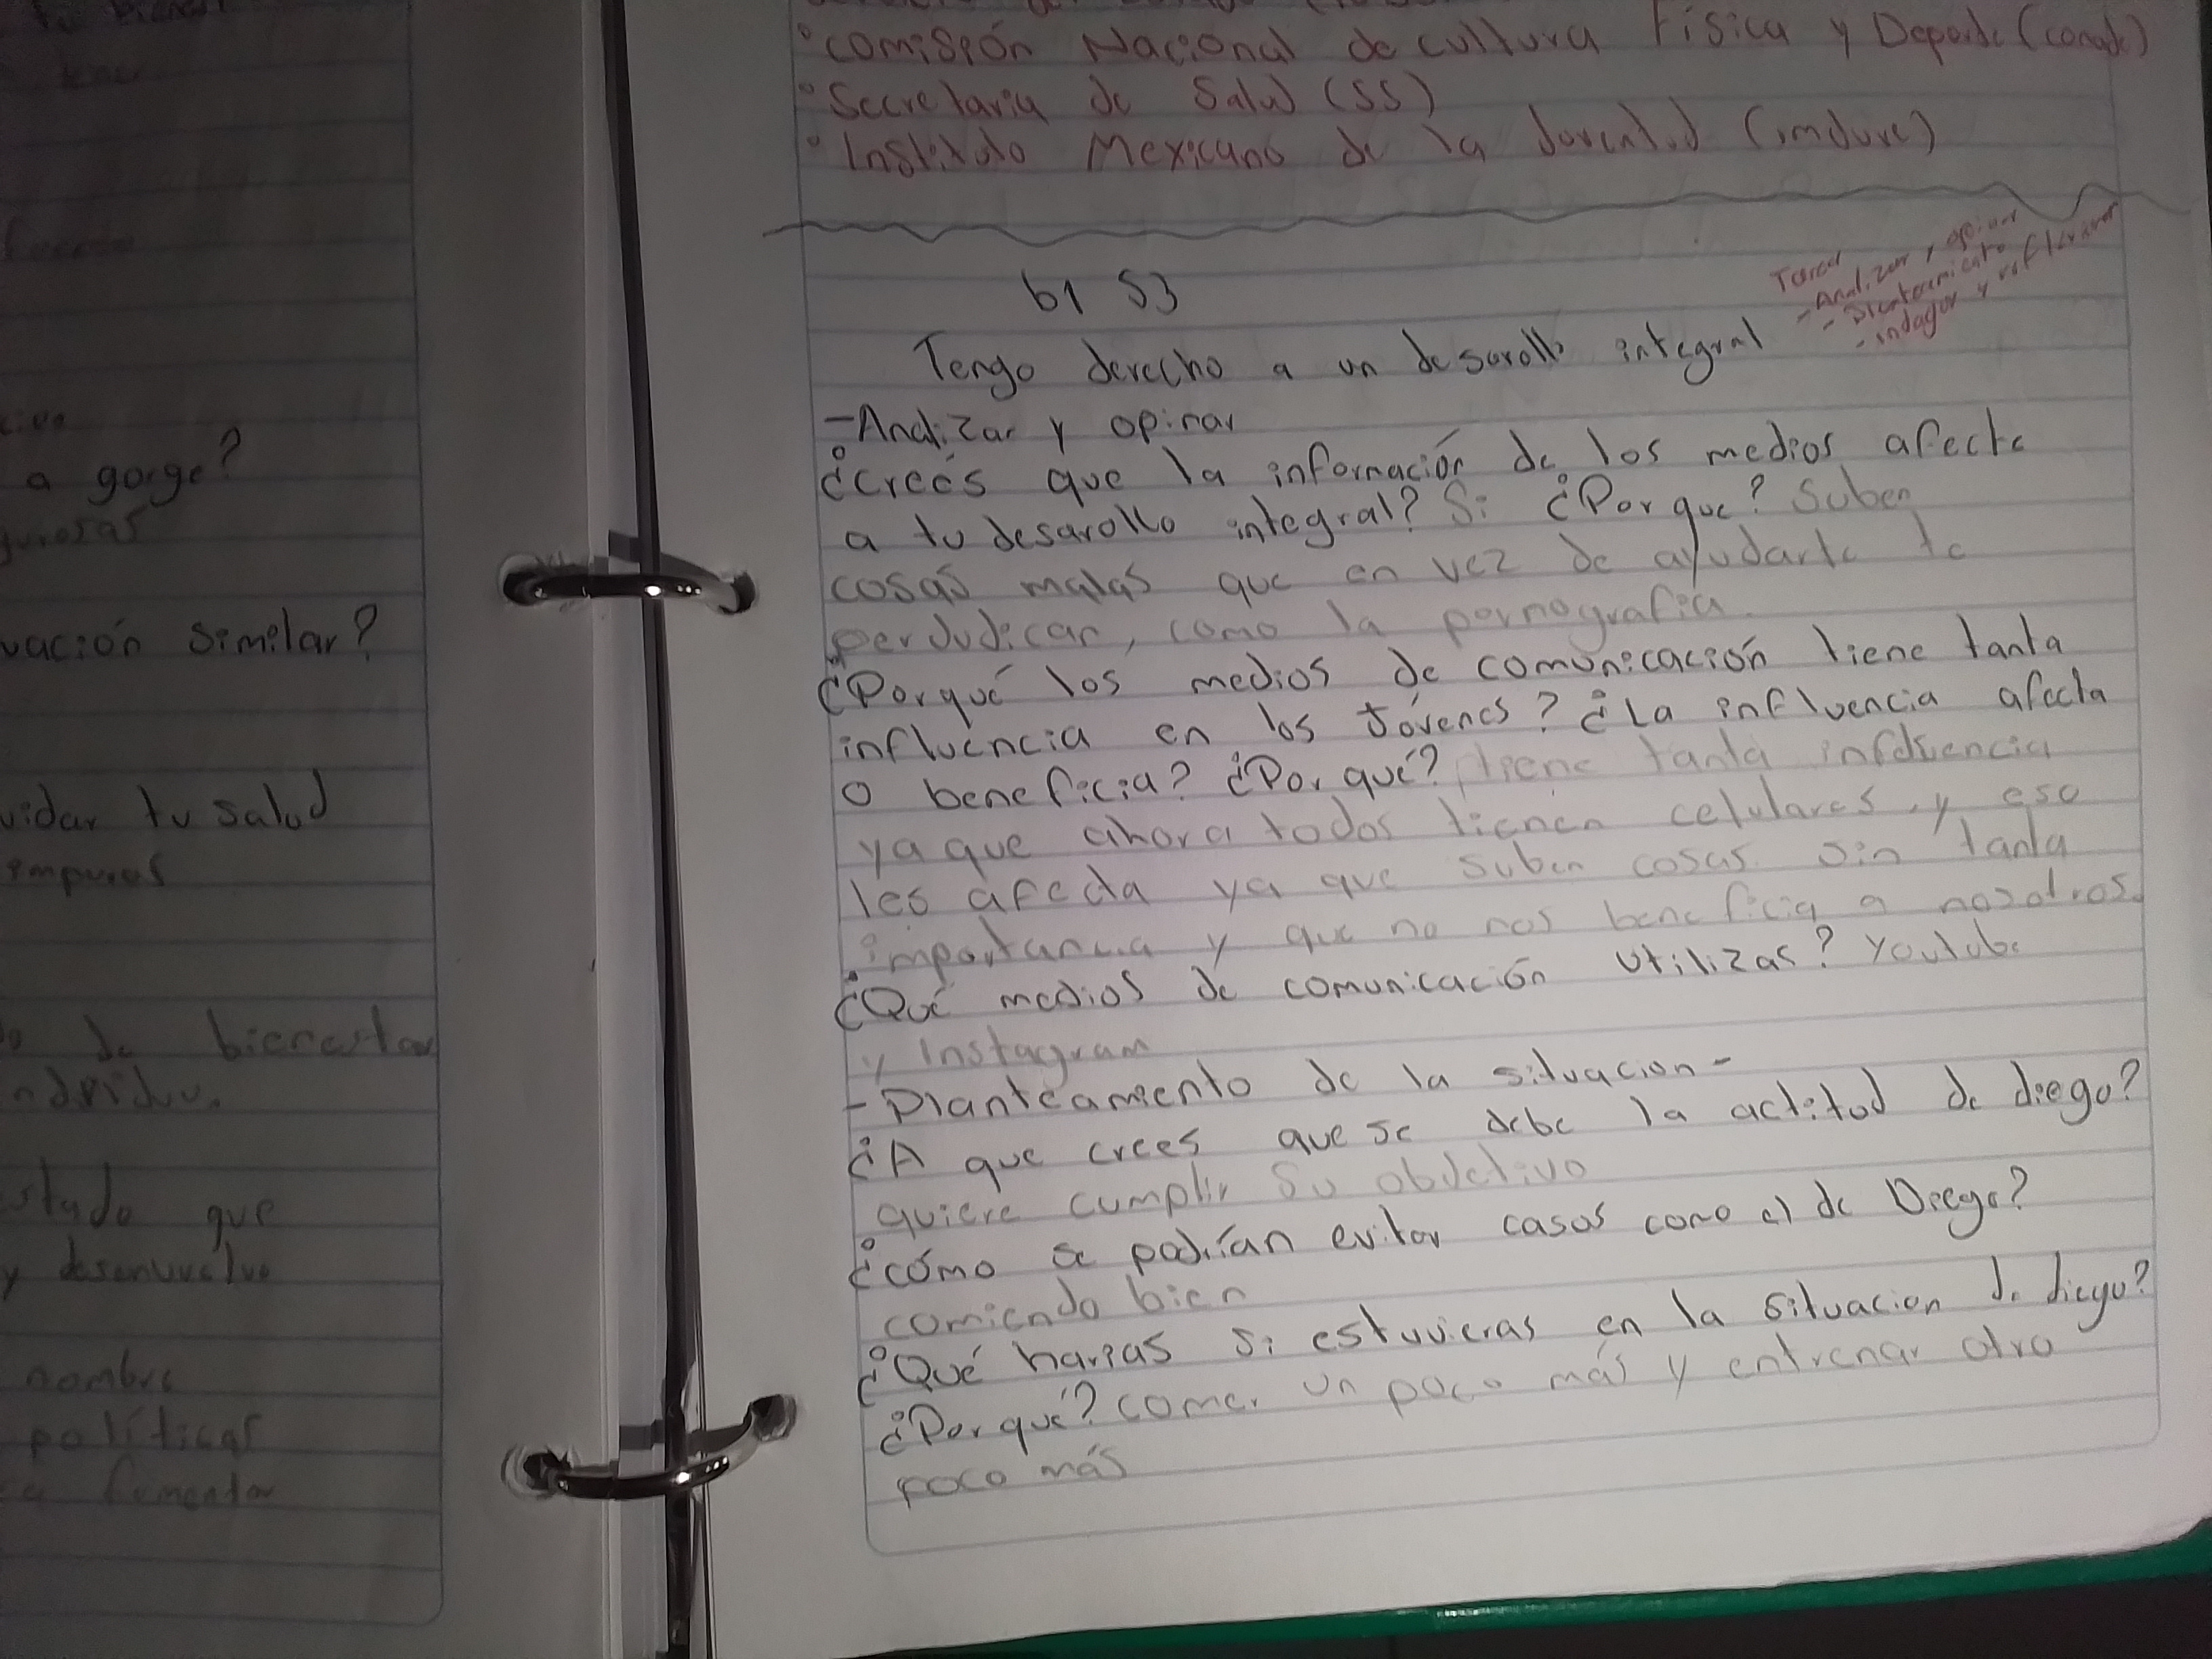 a gorge?
vación similar?
vidar tu salud
impuras
de bienestar
stado que
y desenvuelve
nombre
políticas
a fomentar
•comisión Nacional de cultura Física y Deporte (conade)
•Secretaria de Salud (SS)
•Instituto Mexicano de la Juventud (imduve)
Tarea
-Analizar y opinar
-planteamiento
-indagar y reflexionar
b1 S3
Tengo derecho a un desarollo integral
-Analizar y opinar
¿creés que la información de los medios afecte
a tu desarollo integral? Si ¿Por que? Suben
cosas malas que en vez de ayudarte te
perdudican, como la pornografia.
¿Porqué los medios de comunicación tiene tanta
influencia en los Jóvenes? ¿La influencia afecta
o beneficia? ¿Por qué? tiene tanta infduencia
ya que ahora todos tienen celulares, y eso
les afecta ya que suben cosas sin tanta
importancia y que no nos beneficia a nosotros.
¿Qué medios de comunicación utilizas? Youtube
y Instagram
-Planteamiento de la situacion-
¿A que crees que se debe la actitud de diego?
quiere cumplir su obdetivo
¿cómo se podrían evitar casos como el de Diego?
comiendo bien
¿Qué harias si estuvieras en la situacion de diego?
¿Por qué? comer un poco más y entrenar otro
poco más